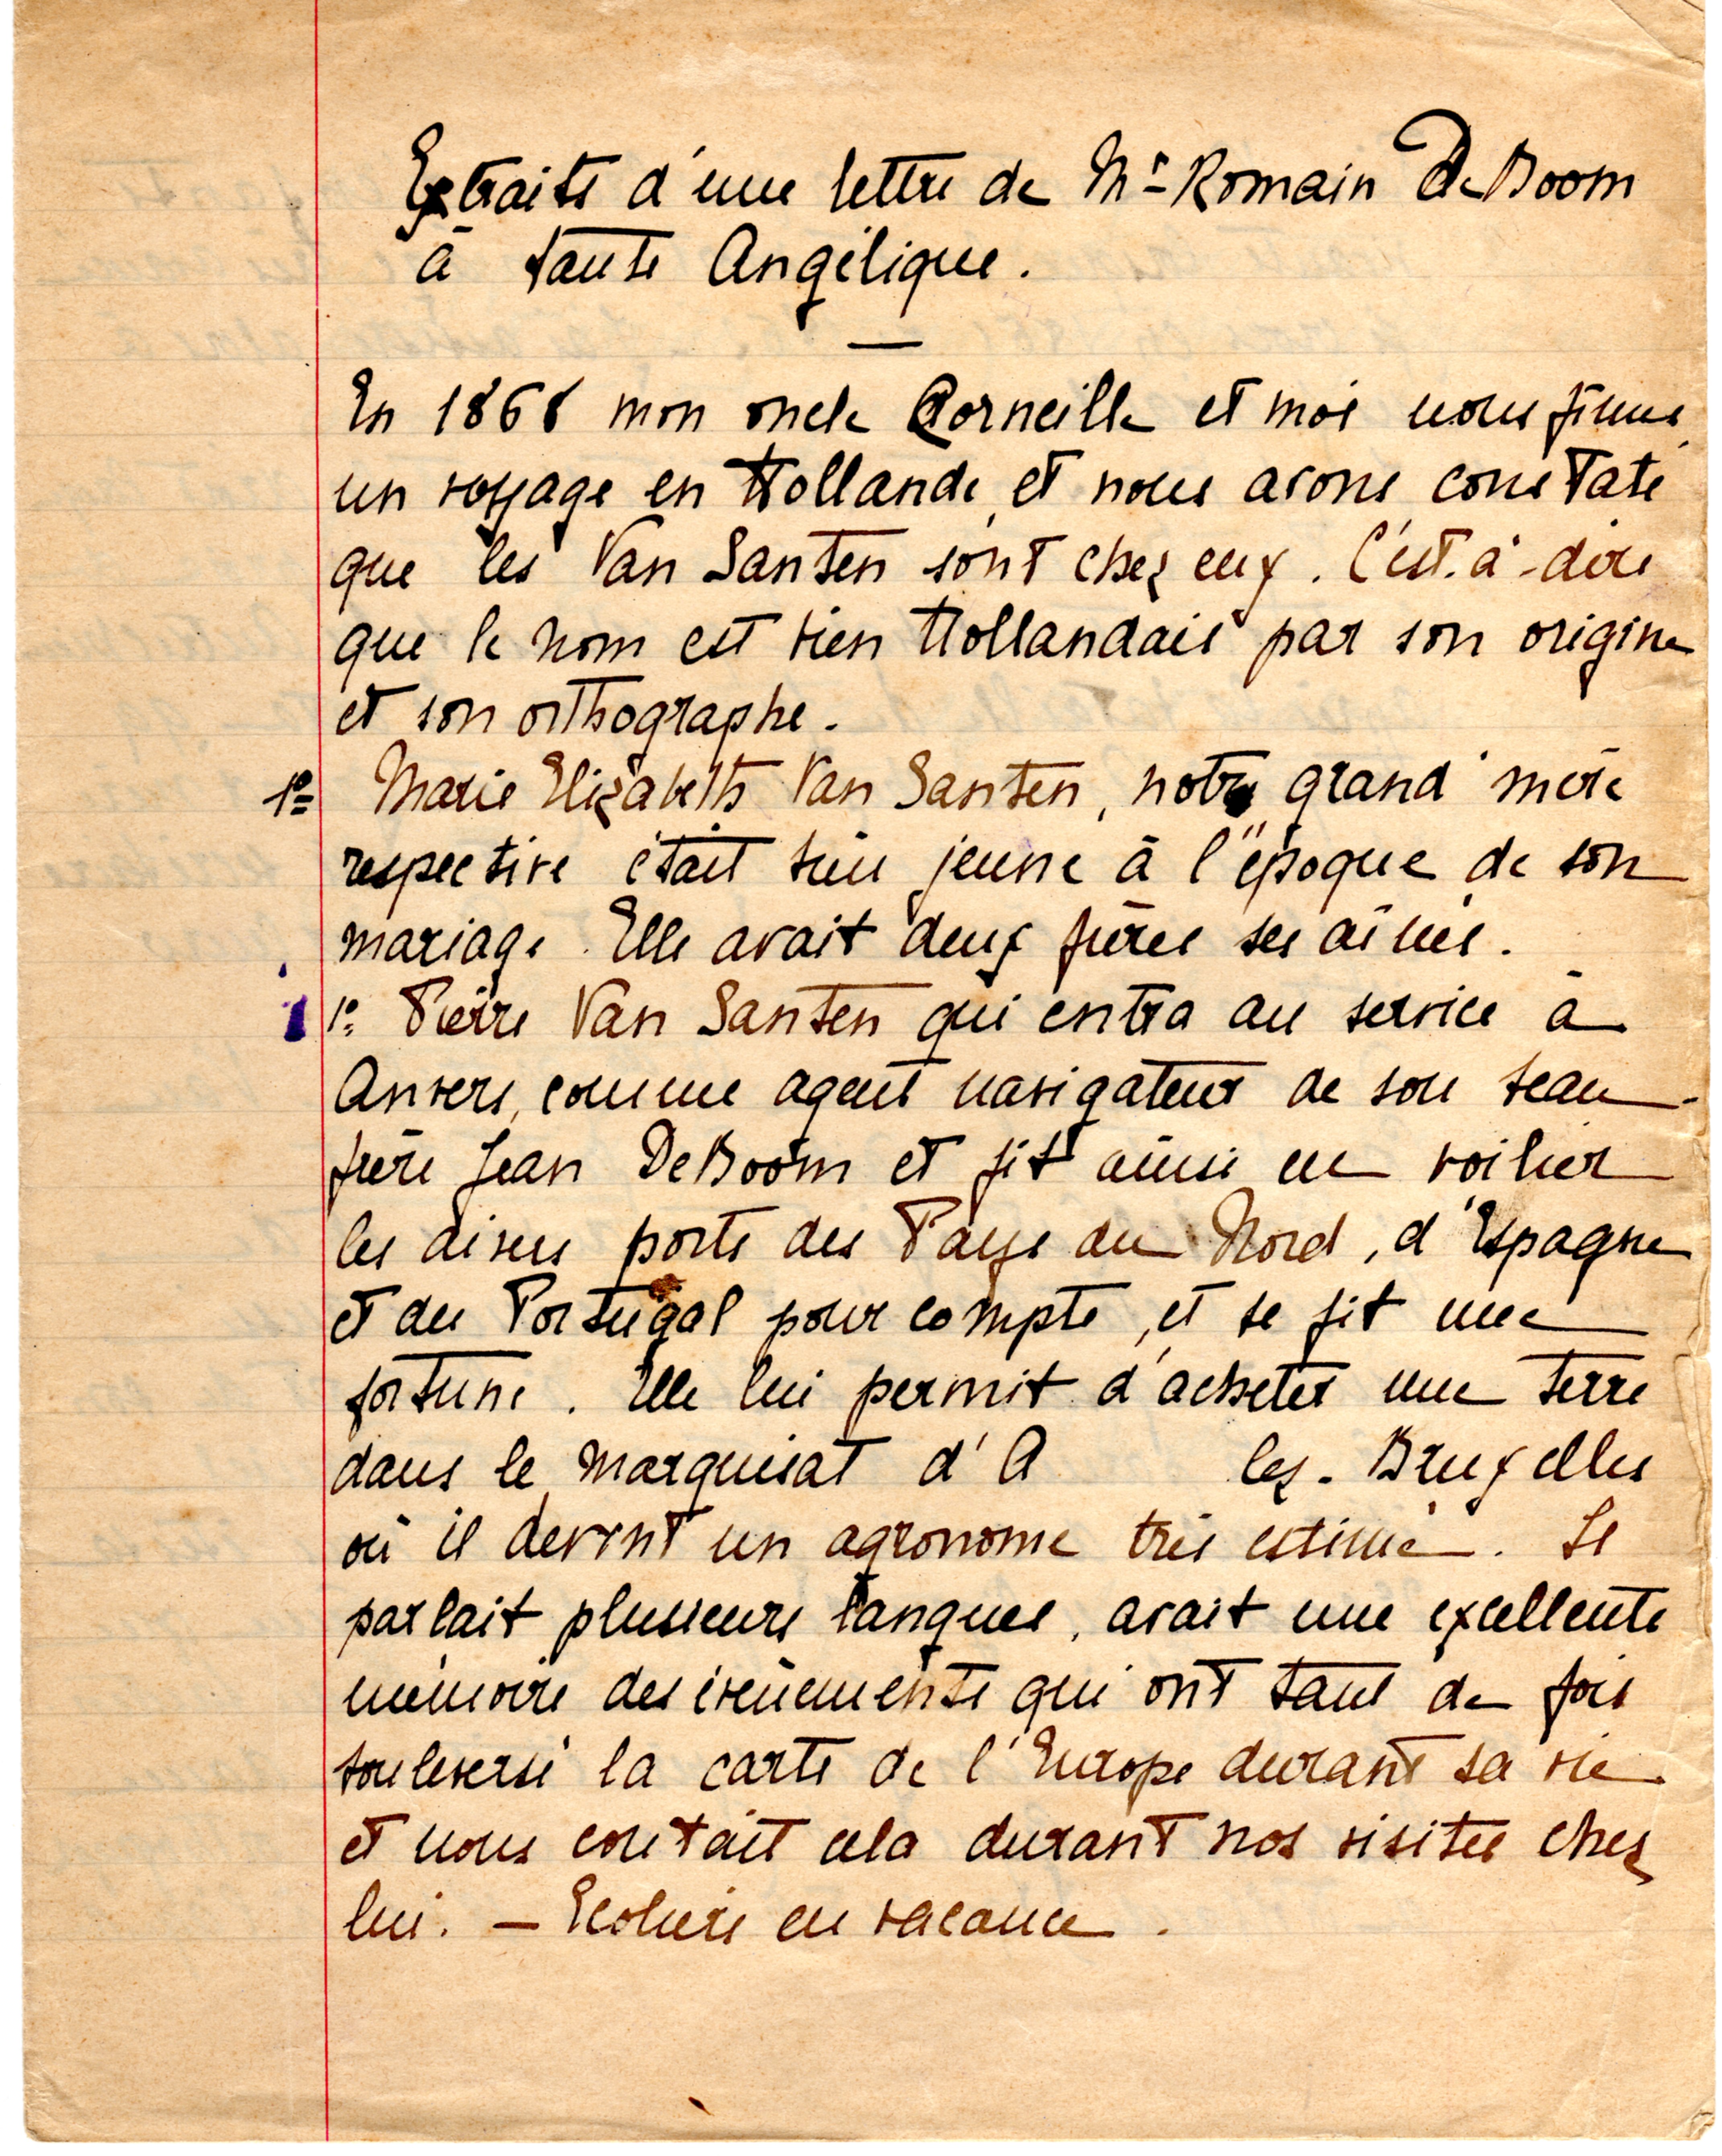 Extraits d'une lettre de Mr Romain De Boom
à tante Angélique.
En 1868 mon oncle Corneille et moi nous fîmes
un voyage en Hollande, et nous avons constaté
que les Van Santen sont chez eux. C'est-à-dire
que le nom est bien Hollandais par son origine
et son orthographe.
1º Marie Elizabeth Van Santen, notre grand'mère
respective était bien jeune à l'époque de son
mariage. Elle avait deux frères ses aînés.
1º Pierre Van Santen qui entra au service à
Anvers, comme agent navigateur de son beau-
frère Jean De Boom et fit ainsi en voilier
les divers ports des Pays du Nord, d'Espagne
et du Portugal pour compte, et se fit une
fortune. Elle lui permit d'acheter une terre
dans le marquisat d'A lez-Bruxelles
où il devint un agronome très estimé. Il
parlait plusieurs langues, avait une excellente
mémoire des évènements qui ont tant de fois
bouleversé la carte de l'Europe durant sa vie
et nous contait cela durant nos visites chez
lui. — Ecoliers en vacance.